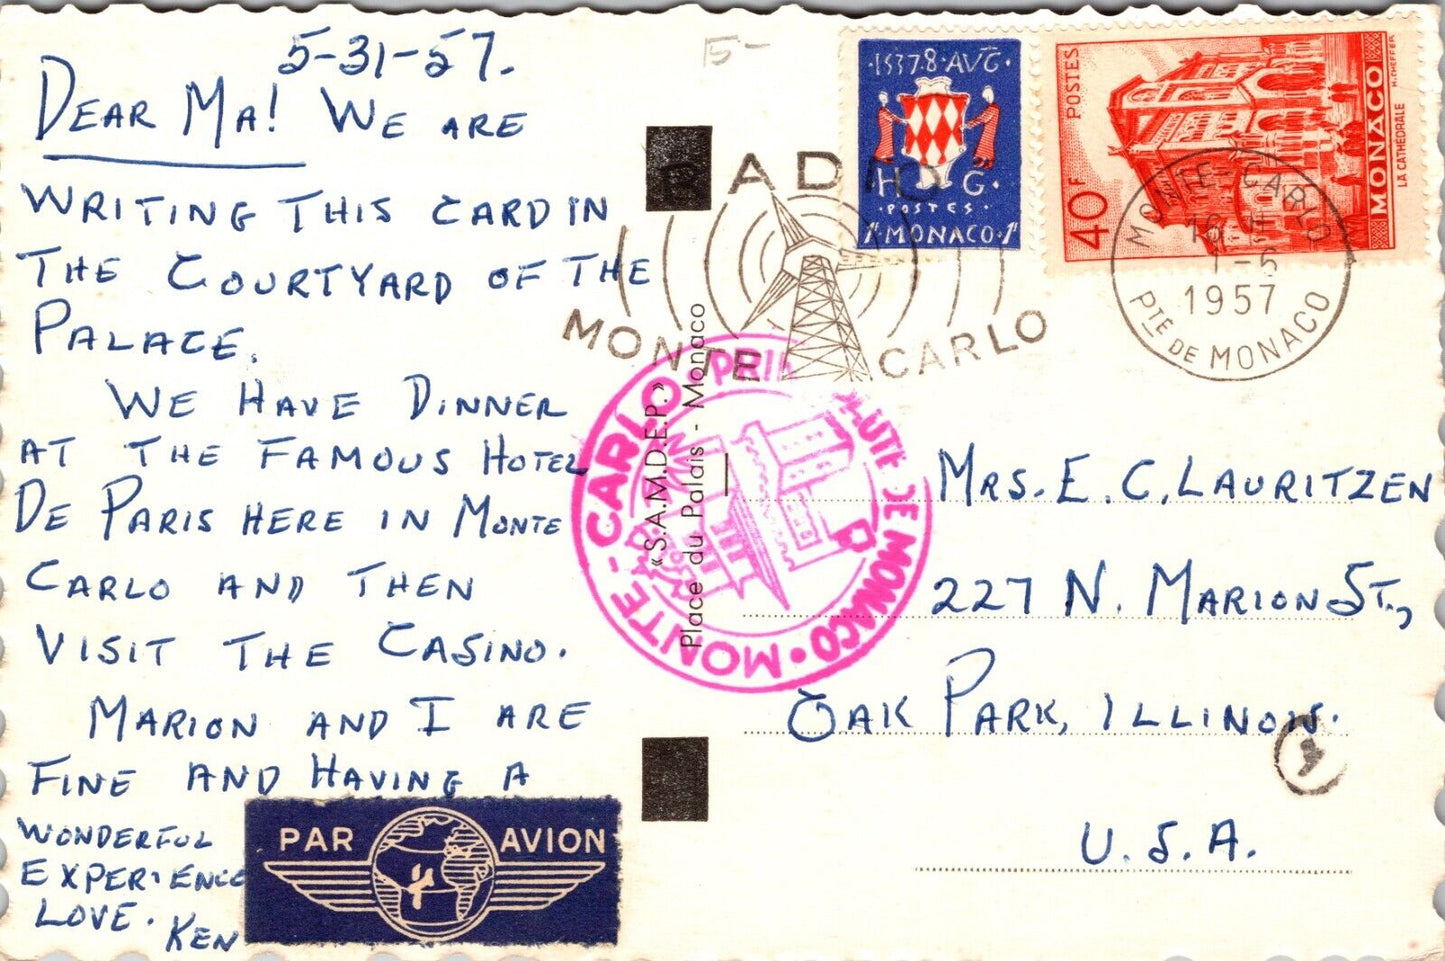 5-31-57.
DEAR MA! WE ARE
WRITING THIS CARD IN
THE COURTYARD OF THE
PALACE.
WE HAVE DINNER
AT THE FAMOUS HOTEL
DE PARIS HERE IN MONTE
CARLO AND THEN
VISIT THE CASINO.
MARION AND I ARE
FINE AND HAVING A
WONDERFUL
EXPERIENCE
LOVE.
KEN
PAR AVION
15-
«S.A.M.D.E.P.»
Place du Palais - Monaco
RADIO
MONTE CARLO
MONTE-CARLO
DE MONACO
·1537·8·AVG·
H G
·POSTES·
1F·MONACO·1F
POSTES
40F
MONACO
LA CATHÉDRALE
H.CHEFFER
MONTE-CARLO
16 H
1-5
1957
PTÉ DE MONACO
MRS. E. C. LAURITZEN
227 N. MARION ST.,
OAK PARK, ILLINOIS.
U.S.A.